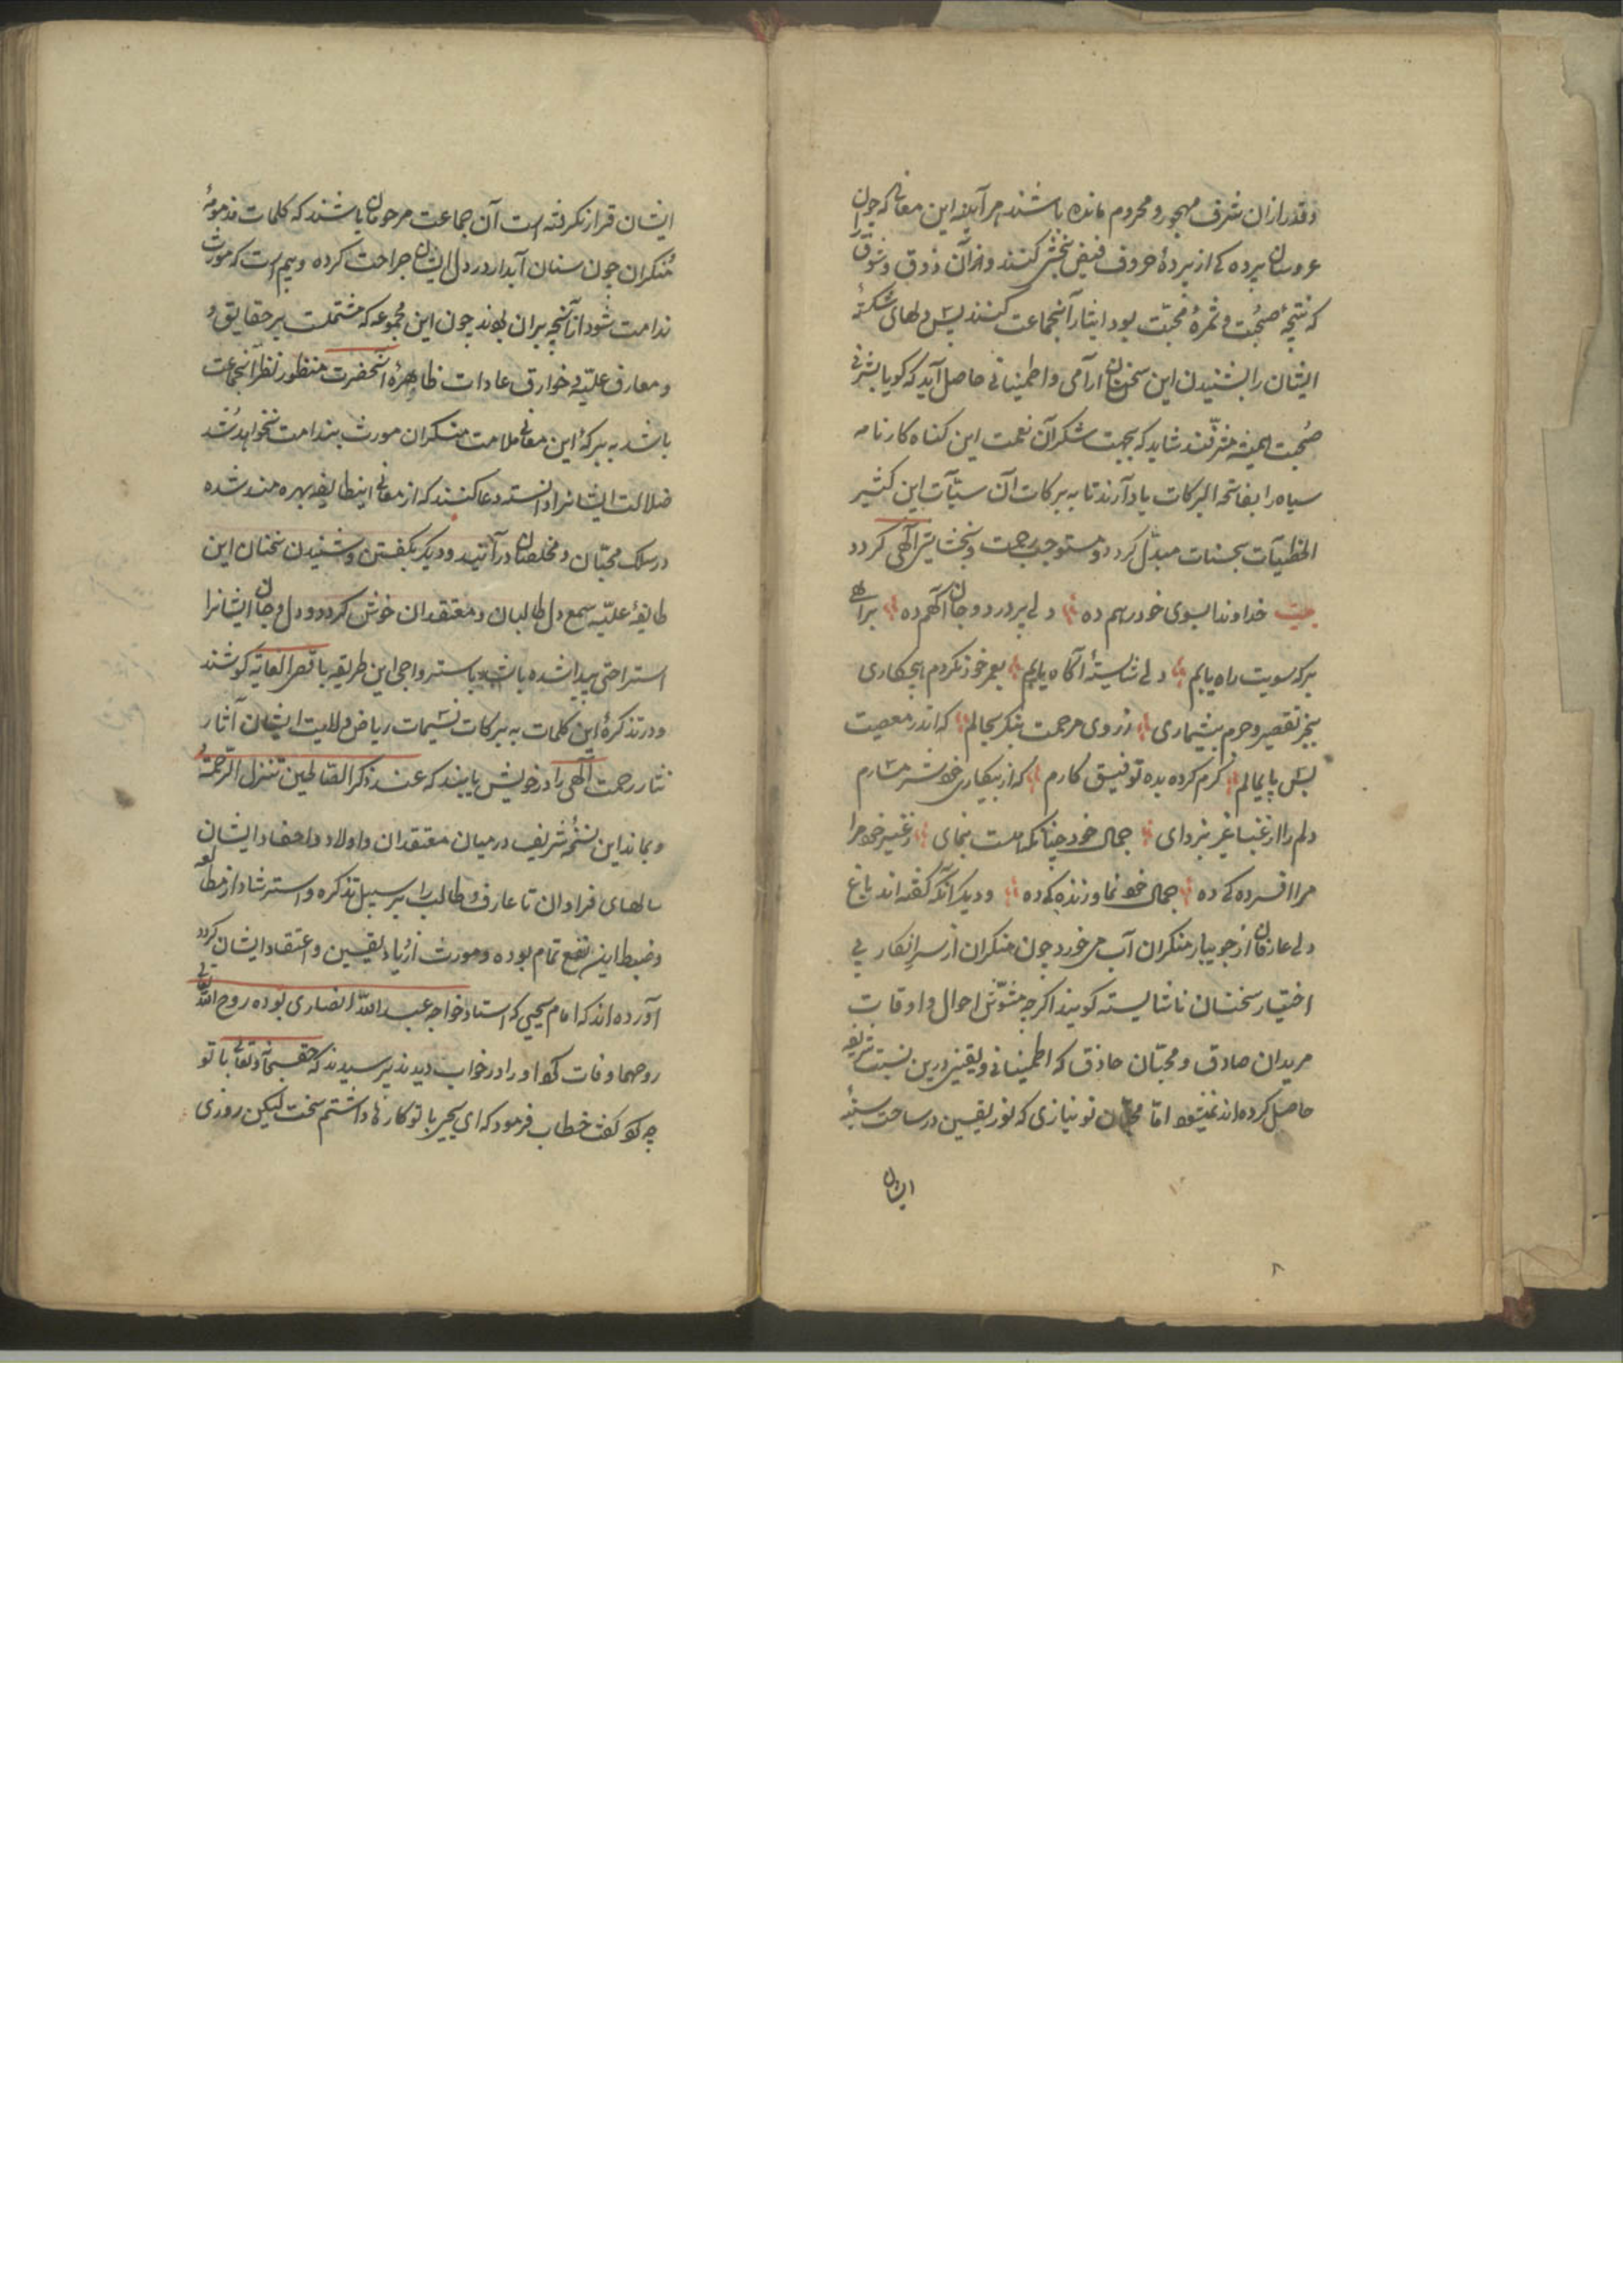 وقدر ازان شرف مهجور و محروم مانده باشند هر آینه این معانی که چون
عروسان پرده کی از پرده حروف فیض بخشی کنند و از آن ذوق و شوق
که نتیجهٔ صُحبت و ثمرهٔ محبّت بود ایثار آنجماعت کنند پس دلهای شکستهٔ
ایشان را بشنیدن این سخنان آرامی و اطمینانی حاصل آید که کویا بشرف
صُحبت همیشه مشرّفند شاید که بجهت شکر آن نعمت این کناه کار نامه
سیاه را بفاتحة البرکات یاد آرند تا به برکات آن سیّآت این کثیر
الخطیّآت بحسنات مبدّل کردد و مستوجب رحمت و بخشایش الٓهی کردد
بیت خداوندا بسوی خود رهم ده دلی پر درد و جان آکهم ده براهی
بر که سویت راه یابم دلی شایستهٔ آکاه یابم بعمر خود نکردم هیچ کاری
بجز تقصیر و جرم بیشماری ز روی مرحمت بنکر بحالم که اندر معصیت
بس پایمالم کرم کرده بده توفیق کارم که از بیکاری خود شرمسارم
دلم را از غبار غیر بزدای جمال خود چنانکه هست بنمای ز غیر خود مرا
مرا افسرده کی ده جمال خود نما و زنده کی ده و دیکر آنکه کفته اند باغ
دل عارفان از جویبار منکران آب می خورد چون منکران از سر انکار بی
اختیار سخنان ناشایسته کویند اکرچه مشوّش احوال و اوقات
مریدان صادق و محبّان حاذق که اطمینانی و یقینی درین نسبت شریفه
حاصل کرده اند نمیشود امّا محبّان نو نیازی که نور یقین در ساحت سینهٔ
ایشان
ایشان قرار نکرفته است آن جماعت مرحومان باشند که کلمات مذمومهٔ
مُنکران چون سنان آبدار در دل ایشان جراحت کرده و بیم است که مورث
ندامت شود تا آنچه بران بودند چون این مجموعه که مشتملست بر حقایق و
و معارف علیّه و خوارق عادات ظاهرهٔ آنحضرت منظور نظر آنجماعت
باشد به برکهٔ این معانی ملامت منکران مورث بندامت نخواهد شد
ضلالت ایشانرا دانسته دعا کنند که از معانی اینطایفه بهره مند شده
در سلک محبّان و مخلصان در آیند و دیکر بکفتن و شنیدن سخنان این
طایفهٔ علیّه سمع دل طالبان و معتقدان خوش کردد و دل و جان ایشانرا
استراحتی پیدا شده باشد باستر واجی این طریقه باقصی الغایة کوشند
و در تذکرهٔ این کلمات به برکات نسیمات ریاض ولایت ایشان آثار
نثار رحمت الٓهی را در خویش یابند که عند ذکر الصّالحین تنزل الرّحمة
و بماند این نسخهٔ شریف در میان معتقدان و اولاد و احفاد ایشان
سالهای فراوان تا عارف و طالب را بر سبیل تذکره و استرشاد از مطالعه
و ضبط این نفع تمام بوده و مورث ازیاد یقین و اعتقاد ایشان کردد
آورده اند که امام یحیی که استاد خواجه عبد اللّه انصاری بوده روح اللّه تعالی
روحهما وفات کرد او را در خواب دیدند پرسیدند که حق سبحانه و تعالی با تو
چه کرد کفت خطاب فرمود که ای یحیی با تو کارها داشتم سخت لیکن روزی